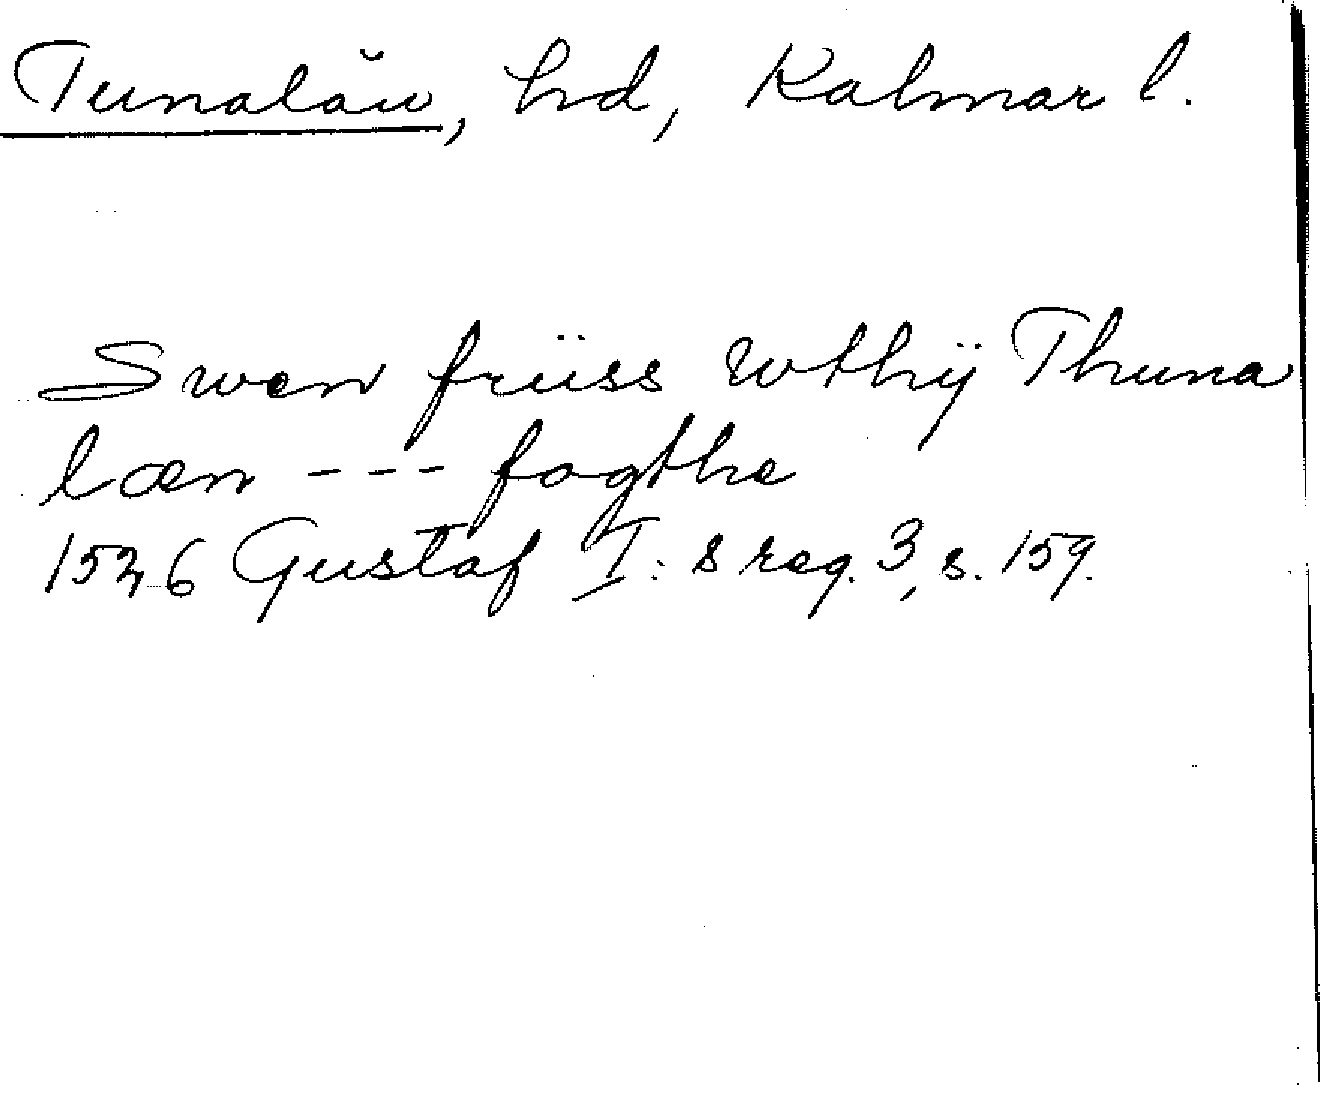 Tunalän, hd, Kalmar l.
Swen früss wthÿ Thuna
læn --- fogthe
1526 Gustaf I:s reg. 3, s. 159.